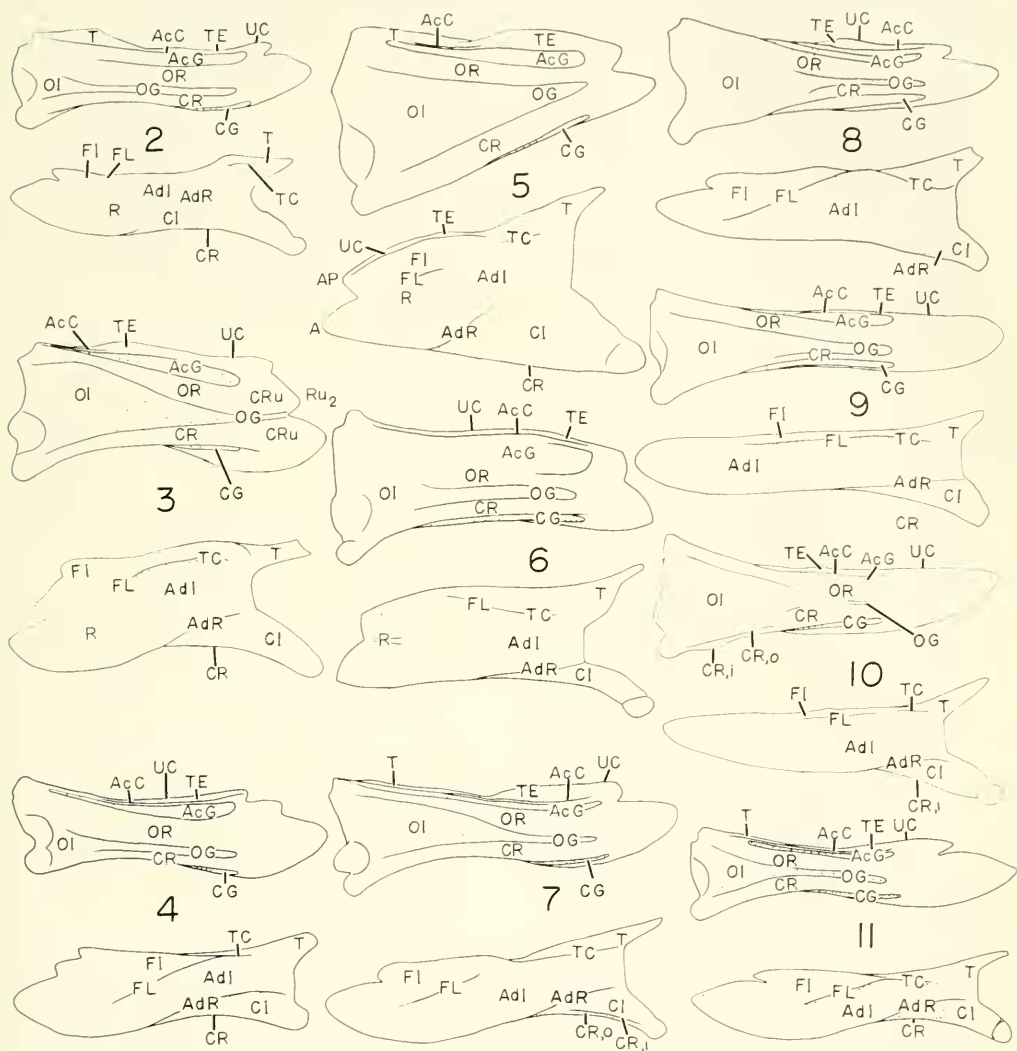 T AcC TE UC
AcG
OR
OI OG CR
CG
2
FI FL T
AdI AdR TC
R CI
CR
AcC TE UC
AcG
OI OR CRu Ru2
OG
CR CRu
CG
3
FI FL TC T
AdI
R AdR CI
CR
AcC UC TE
AcG
OR
OI CR OG
CG
4
TC T
FI
FL AdI
AdR CI
CR
AcC
T TE
OR AcG
OG
OI
CR CG
5
TE T
UC TC
FI
AP FL AdI
R
A AdR CI
CR
UC AcC TE
AcG
OR
OI OG
CR CG
6
FL TC T
R AdI
AdR CI
T AcC UC
TE
OR AcG
OI
CR OG
CG
7
TC T
FI
FL AdI AdR CI
CR,o CR,i
TE UC AcC
OR AcG
OI CR OG
CG
8
T
FI FL TC
AdI
CI
AdR
AcC TE UC
OR AcG
OI OG
CR
CG
9
FI
FL TC T
AdI
AdR CI
CR
TE AcC AcG UC
OR
OI
CR CG
CR,i CR,o OG
10
FI TC
FL T
AdI
AdR CI
CR,i
T AcC TE UC
OR AcG
OI OG
CR CG
11
FI TC T
FL
AdI AdR CI
CR